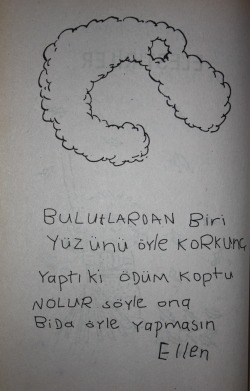 BULUTLARDAN Biri
YüzüNü öyle KORKUNÇ
YAPTı Ki ÖDÜM KOPTU
NOLUR SÖYLE ONA
BiDA ÖYLE YAPMASıN
Ellen